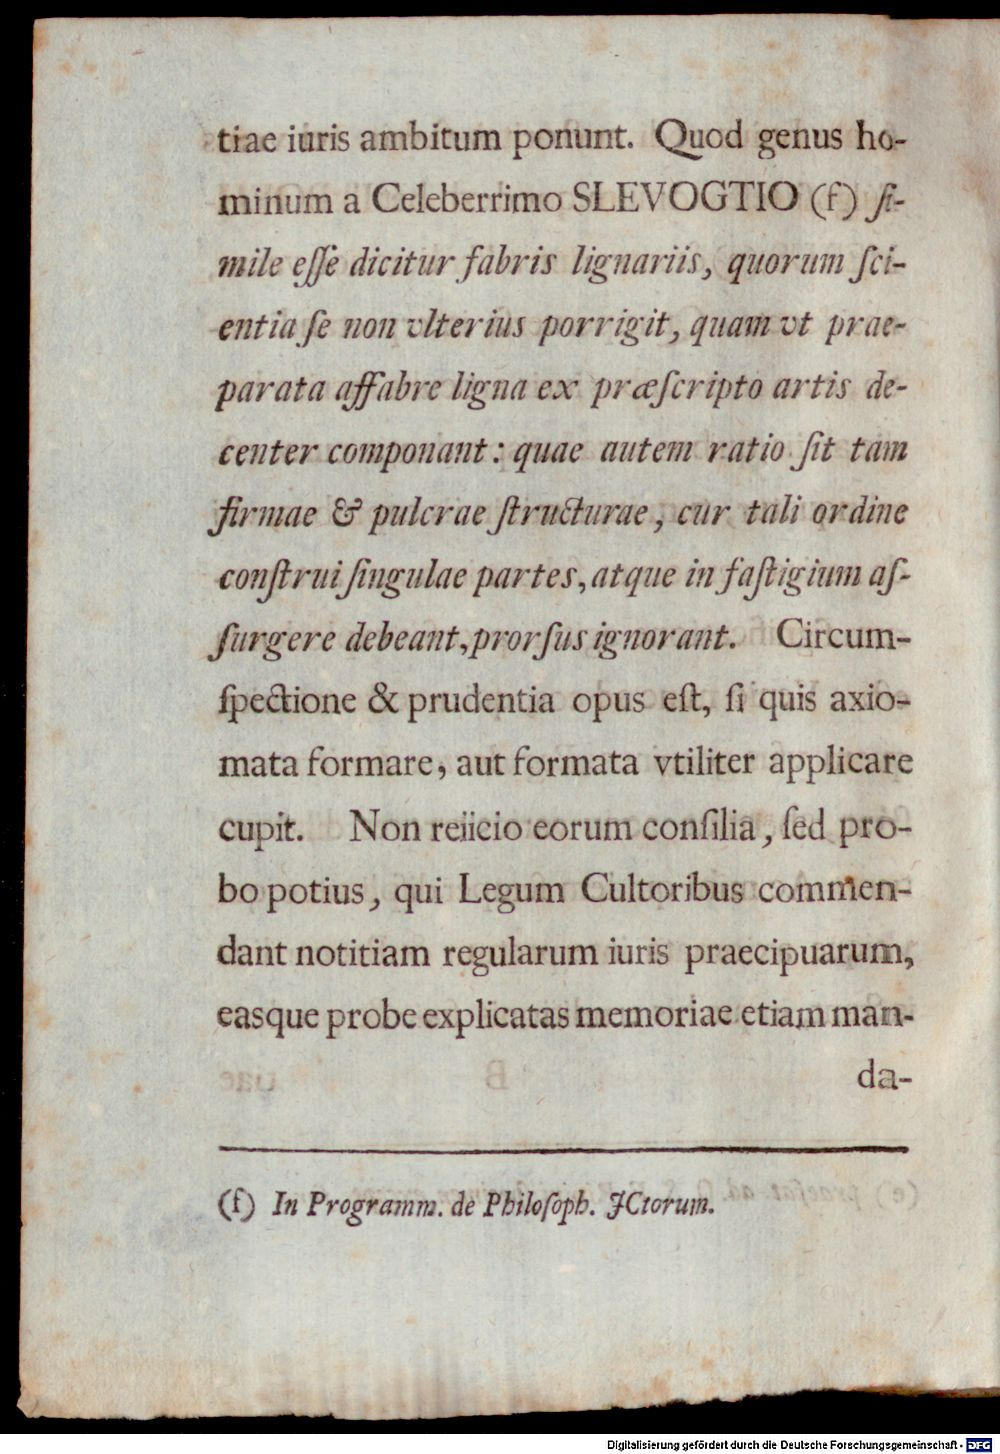 tiae iuris ambitum ponunt. Quod genus ho-
minum a Celeberrimo SLEVOGTIO (f) ſi-
mile eſſe dicitur fabris lignariis, quorum ſci-
entia ſe non vlterius porrigit, quam vt prae-
parata affabre ligna ex præſcripto artis de-
center componant: quae autem ratio ſit tam
firmae & pulcrae ſtructurae, cur tali ordine
conſtrui ſingulae partes, atque in faſtigium aſ-
ſurgere debeant, prorſus ignorant. Circum-
ſpectione & prudentia opus eſt, ſi quis axio-
mata formare, aut formata vtiliter applicare
cupit. Non reiicio eorum conſilia, ſed pro-
bo potius, qui Legum Cultoribus commen-
dant notitiam regularum iuris praecipuarum,
easque probe explicatas memoriae etiam man-
da-
(f) In Programm. de Philoſoph. JCtorum.
Digitalisierung gefördert durch die Deutsche Forschungsgemeinschaft - DFG